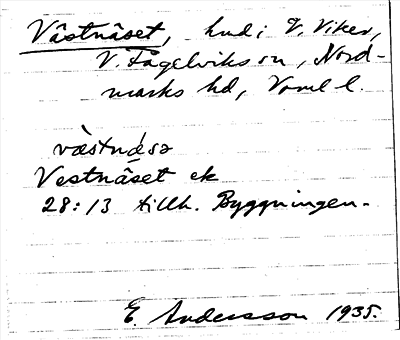 Västnäset, hmd i V. Viker,
V. Fågelviks sn, Nord-
marks hd, Vrml l.
væstnǽsə
Vestnäset ek
28:13 tillh. Byggningen.
E. Andersson 1935.